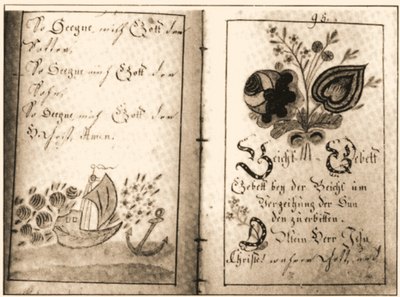 So Seegne, mich Gott der
Vatter,
So Seegne mich Gott der
Sohn,
So Seegne, mich Gott der
Geist, Amen.
Beicht-Gebett
Gebett bey der Beicht um
Verzeihung der Sün
den zu erbitten.
O Mein Herr Jesu
Christe! wahrer Gott, und